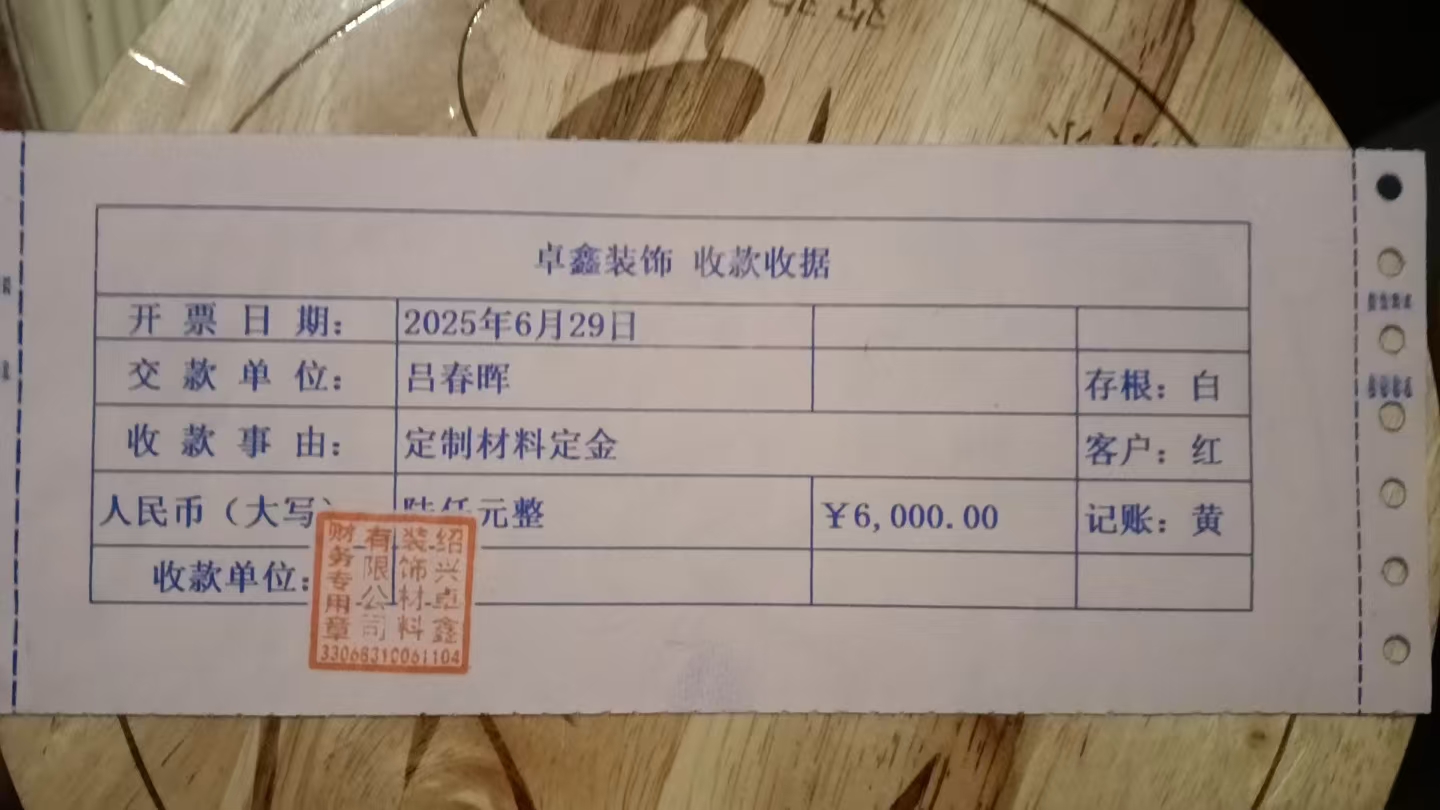 卓鑫装饰 收款收据
开 票 日 期： 2025年6月29日
交 款 单 位： 吕春晖 存根：白
收 款 事 由： 定制材料定金 客户：红
人民币（大写） 陆仟元整 ￥6,000.00 记账：黄
收款单位：
绍兴卓鑫
装饰材料
有限公司
财务专用章
33068310061104